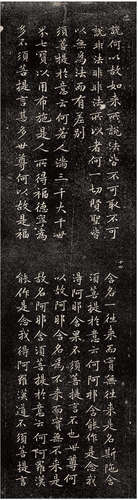 說何以故如来所說法皆不可取不可
說非法非非法所以者何一切賢聖皆
以無為法而有差别
須菩提於意云何若人滿三千大千世
界七寶以用布施是人所得福德寧為
多不須菩提言甚多世尊何以故是福
含名一往来而實無往来是名斯陀含
須菩提於意云何阿那含能作是念我
得阿那含果不須菩提言不也世尊何
以故阿那含名為不来而實無不来是
故名阿那含須菩提於意云何阿羅漢
能作是念我得阿羅漢道不須菩提言